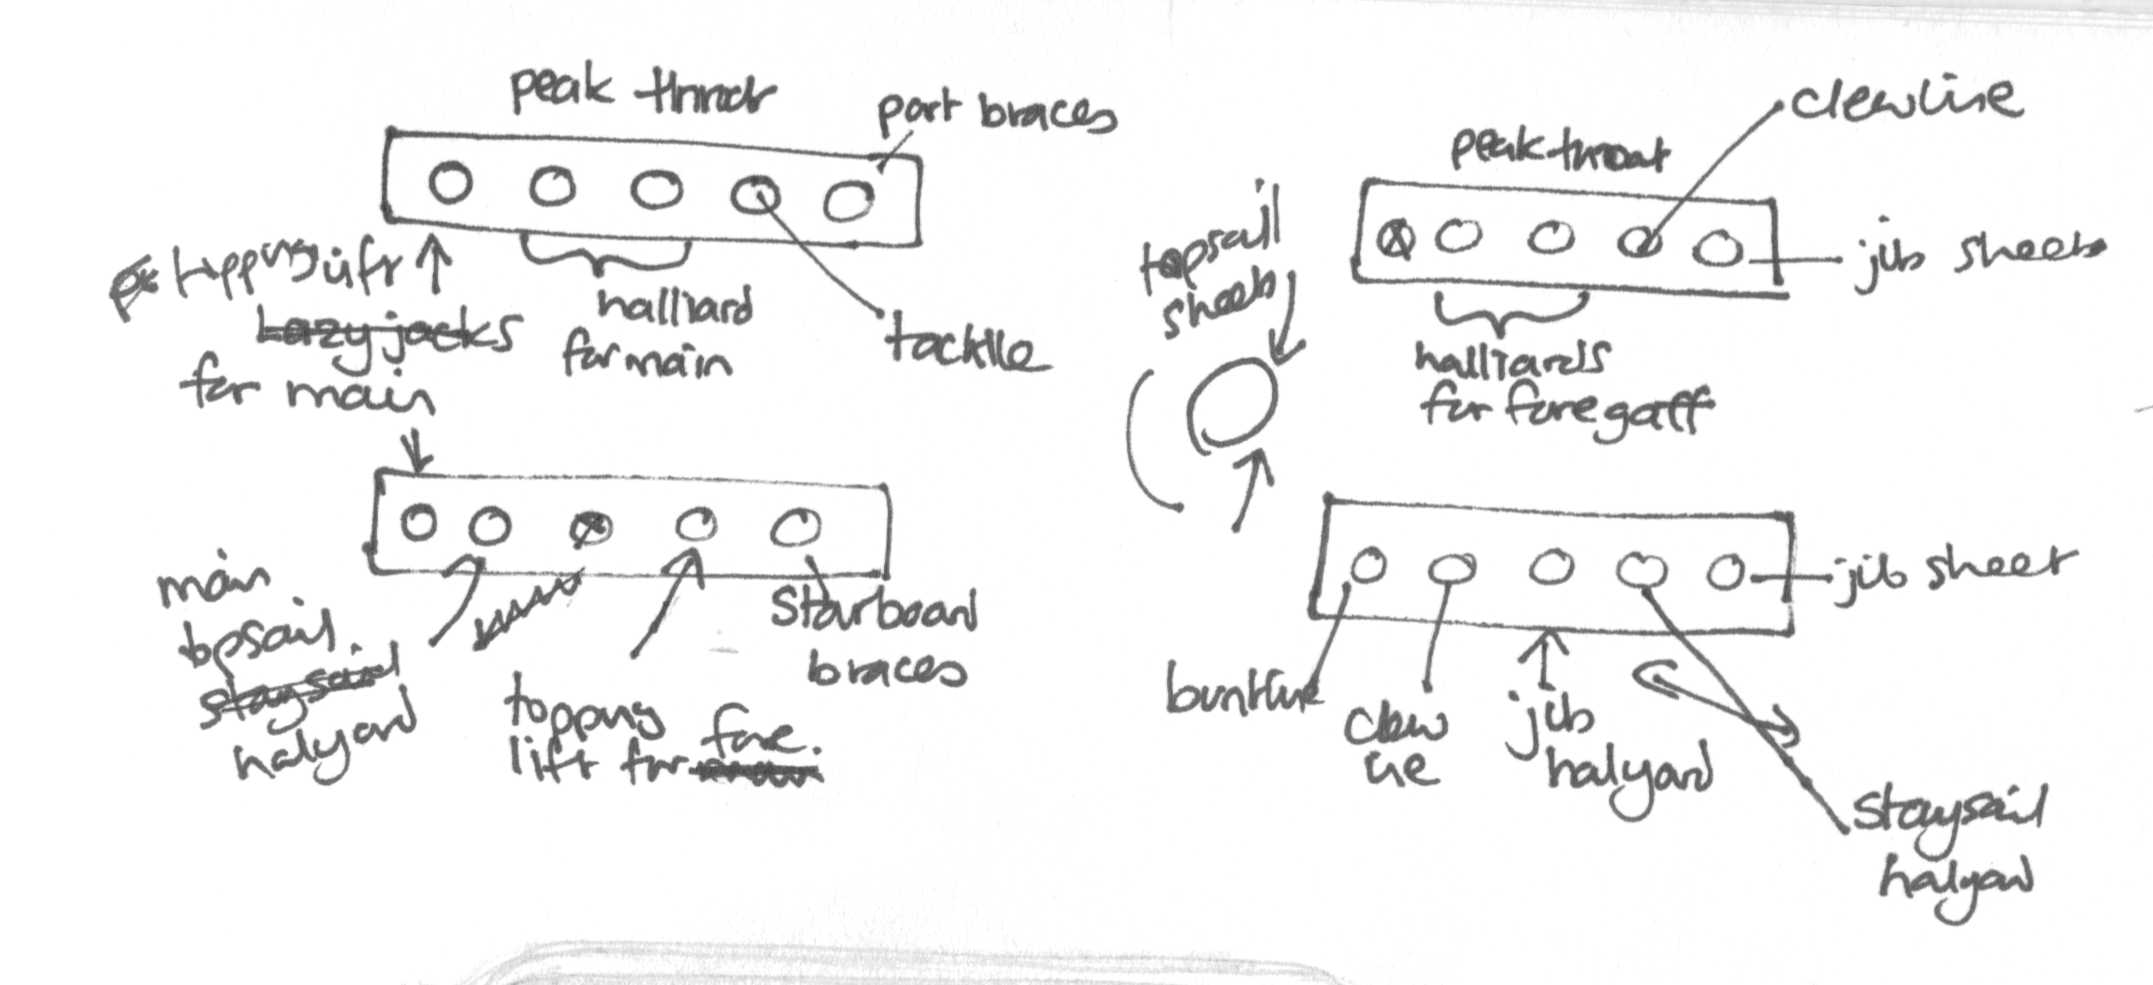 peak throat
port braces
topping lift
Lazy jacks
for main
halliard
for main
tacklle
main
topsail
staysail
halyard
topping
lift for fore.
Starboard
braces
clewline
peak throat
jib sheets
topsail
sheets
halliards
for fore gaff
jib sheet
buntline
clew
line
jib
halyard
Staysail
halyard